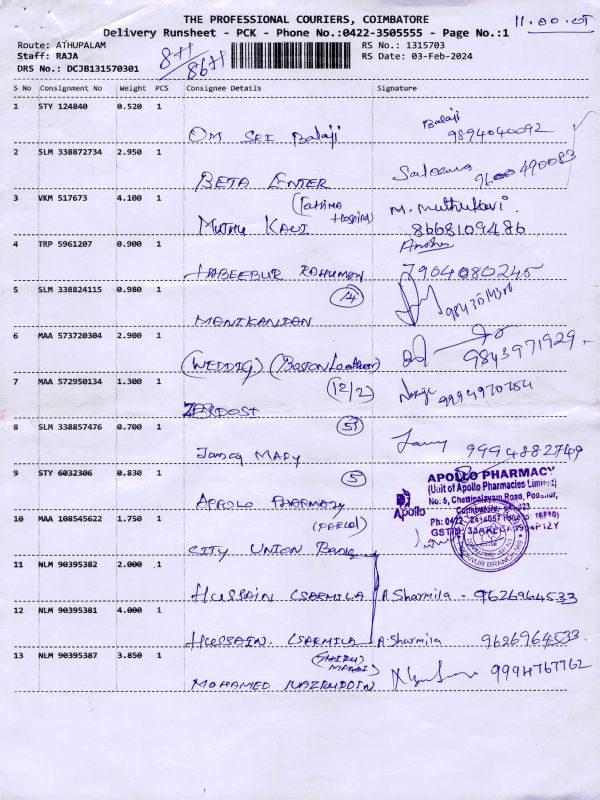 THE PROFESSIONAL COURIERS, COIMBATORE
11.00.
Delivery Runsheet - PCK - Phone No.:0422-3505555 - Page No.:1
Route: ATHUPALAM
RS No.: 1315703
Staff: RAJA
RS Date: 03-Feb-2024
DRS No.: DCJB131570301
S No Consignment No Weight PCS Consignee Details Signature
1 STY 124840 0.520 1
OM SRI Balaji Balaji
9894040092
2 SLM 338872734 2.950 1
BETA ENTER
9600490083
3 VKM 517673 4.100 1
(Fathima Hospital)
MUTHU KAVI M. Muthukavi.
8668109486
4 TRP 5961207 0.900 1
HABEEBUR RAHUMAN 7904080245
5 SLM 338824115 0.980 1
(14)
MANIKANDAN
6 MAA 573720304 2.900 1
(WEDDIG) (Boston Leather) 9843971929
7 MAA 572950134 1.300 1
(12/2)
ZERDOST
8 SLM 338857476 0.700 1
JANCY MARY 9994882749
9 STY 6032306 0.830 1
(5)
APPOLO PHARMACY
APOLLO PHARMACY
(Unit of Apollo Pharmacies Limited)
No: 5, Chettipalayam Road, Podanur,
Coimbatore
Apollo
10 MAA 108545622 1.750 1
(PARCEL)
CITY UNION Bank
11 NLM 90395382 2.000 1
HUSSAIN (SARMILA A. Sharmila - 9626964533
12 NLM 90395381 4.000 1
HUSSAIN. (SARMILA A. Sharmila 9626964533.
13 NLM 90395387 3.850 1
MOHAMED NAZRUDDIN 9994767762